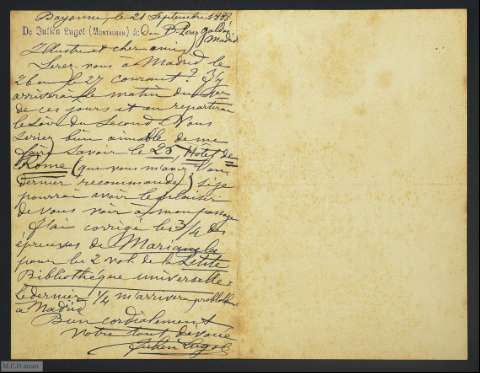 Bayonne, le 21 Septembre 188
De Julien Lugol (Montauban) à: Don B. Perez Galdós
Madrid
Illustre et cher ami,
Serez-vous à Madrid le
26 ou le 27 courant? J'y
arriverai le matin du 1er
de ces jours et en repartirai
le soir du second. Vous
seriez bien aimable de me
faire savoir le 25, Hôtel de
Rome (que vous m'avez l'an
dernier recommandé) si je
pourrai avoir le plaisir
de vous voir à mon passage
J'ai corrigé les 3/4 des
épreuves de Marianela
pour les 2 vol. de la Petite
Bibliothèque universelle.
Le dernier 1/4 m'arrivera probablem
à Madrid
Bien cordialement
Votre tout dévoué
Julien Lugol